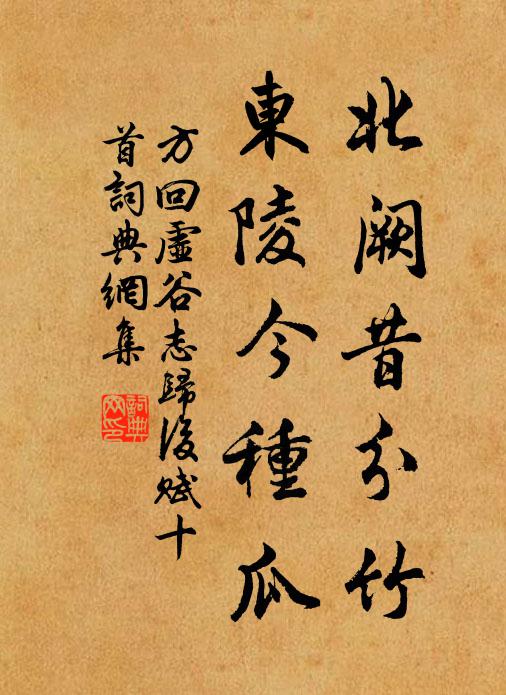 北闕昔分竹
東陵今種瓜
方回虛谷志歸後賦十
首詞典網集
詞典
网印